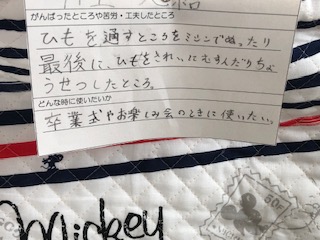 がんばったところや苦労・工夫したところ
ひもを通すところをミシンでぬったり
最後に、ひもをきれいにむすんだりちょ
うせつしたところ。
どんな時に使いたいか
卒業式やお楽しみ会のときに使いたい。
Mickey